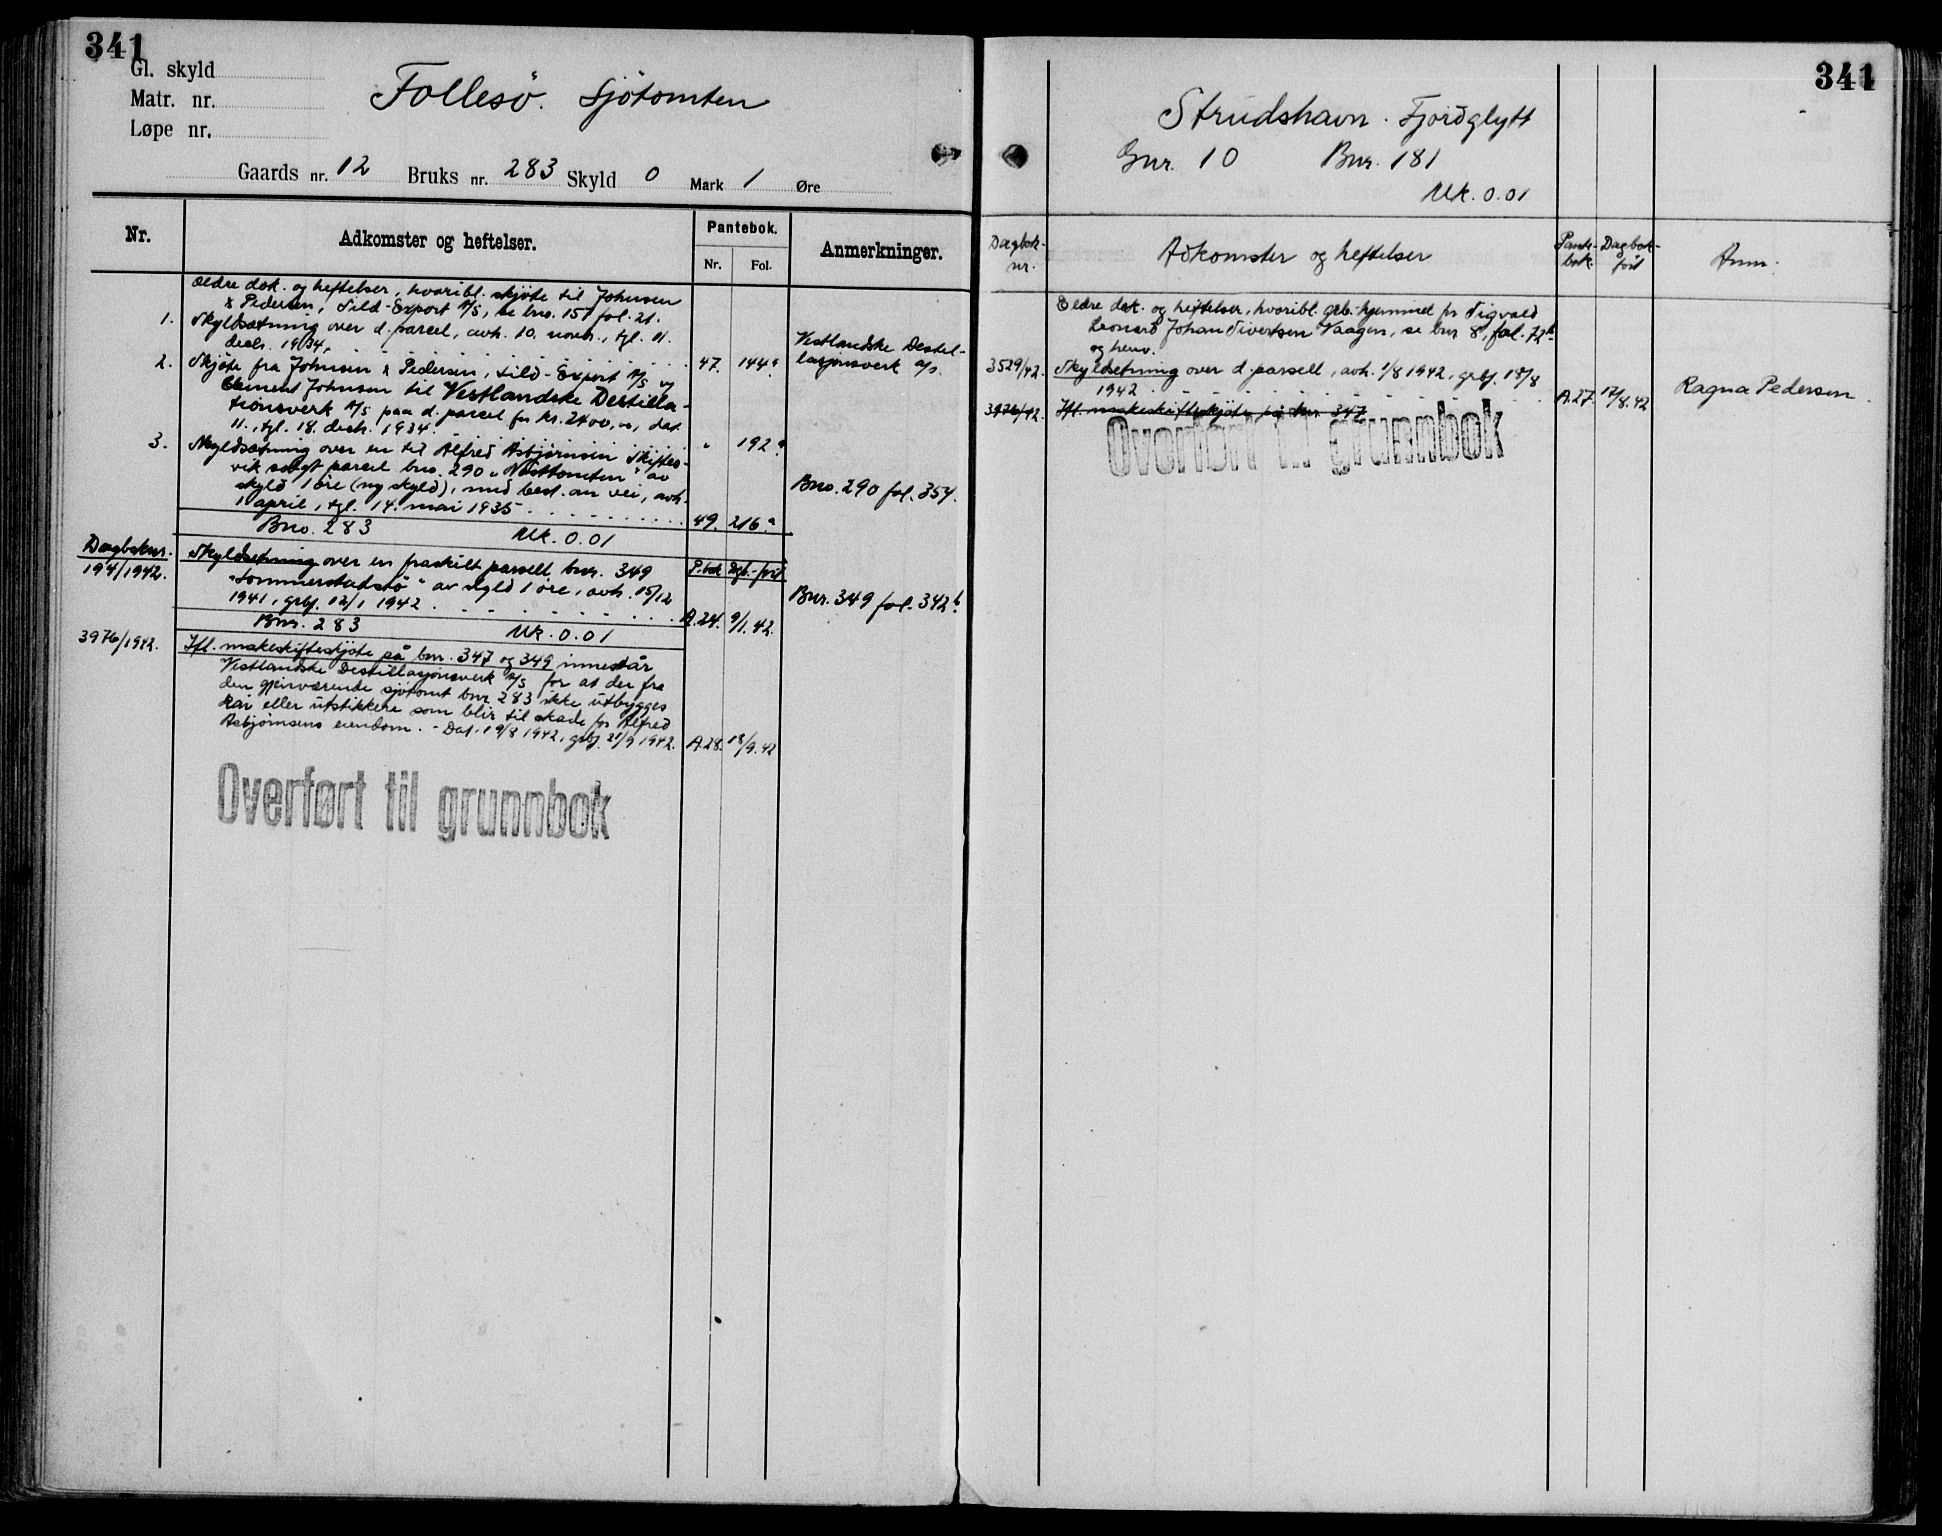 341
Gl. skyld
Matr. nr.
Løpe nr.
Follesø. Sjøtomten
Gaards nr. 12 Bruks nr. 283 Skyld 0 Mark 1 Øre
Nr.
Adkomster og heftelser.
Pantebok.
Nr. Fol.
Anmerkninger.
Eldre dok. og heftelser, hvoribl. skjøte til Johnsen
& Pedersen, Sild-Export A/S, se bno. 157 fol. 21.
1. Skyldsetning over d. parcel, avh. 10. novb., tgl. 11.
decb. 1934, 47. 144a
2. Skjøte fra Johnsen & Pedersen, Sild-Export A/S og
Clement Johnsen til Vestlandske Destilla-
tionsverk A/S paa d. parcel for kr. 2400,00, dat.
11., tgl. 18. decb. 1934. " 192a
Vestlandske Destil-
lasjonsverk A/S.
3. Skyldsetning over en til Alfred Asbjørnsen Skiftes-
vik solgt parcel bno. 290 "Nøsttomten" av
skyld 1 øre (ny skyld), med best. om vei, avh.
1 april, tgl. 14. mai 1935 49. 216a
Bno. 290 fol. 354.
Bno. 283 Mk. 0.01
Dagboknr. P.bok Dagb.-ført
194/1942. Skyldsetning over en fraskilt parsell bnr. 349
"Sommerstadstø" av skyld 1 øre, avh. 15/12
1941, grbf. 12/1 1942. A.24. 9/1.42.
Bnr. 349 fol. 342b.
Bnr. 283 Mk. 0.01
3976/1942. Ifl. makeskifteskjøte på bnr. 347 og 349 innestår
Vestlandske Destillasjonsverk A/S for at der fra
den gjenværende sjøtomt bnr. 283 ikke utbygges
kai eller utstikkere som blir til skade for Alfred
Asbjørnsens eiendom. - Dat. 19/8 1942, grbf. 21/9 1942. A.28. 18/9.42
Overført til grunnbok
341
Strudshavn. Fjordglytt
Gnr. 10 Bnr. 181
Mk. 0.01
Dagbok-
nr.
Adkomster og heftelser
Pante-
bok.
Dagbok-
ført
Anm.
Eldre dok. og heftelser, hvoribl. grb.-hjemmel for Sigvald
Leonard Johan Sivertsen Vaagen, se bnr 8, fol. 72b.
og henv.
3529/42. Skyldsetning over d. parsell, avh. 1/8 1942, grbf. 18/8
1942 A.27. 17/8.42
Ragna Pedersen.
3976/42. Ifl. makeskifteskjøte på bnr. 347
Overført til grunnbok